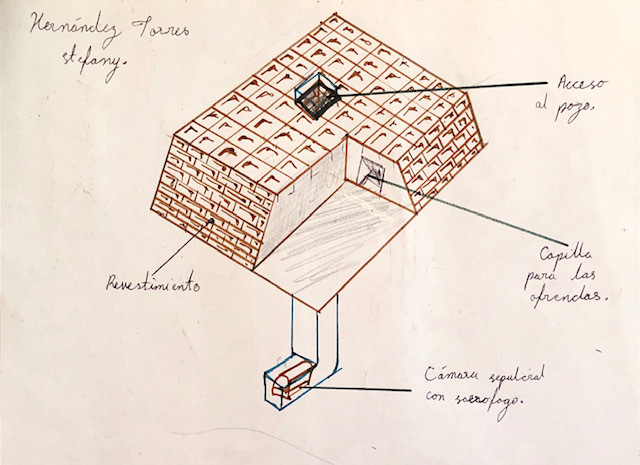 Hernández Torres
stefany.
Acceso
al pozo.
Capilla
para las
ofrendas.
Revestimiento
Cámara sepulcral
con sarcofago.